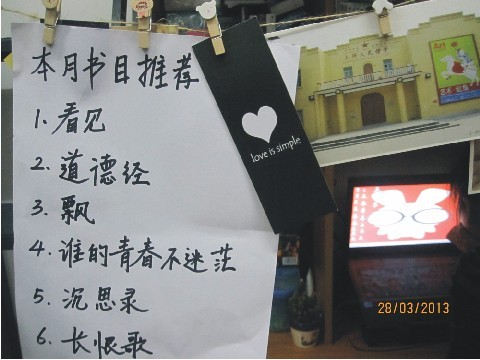 本月书目推荐
1. 看见
2. 道德经
3. 飘
4. 谁的青春不迷茫
5. 沉思录
6. 长恨歌
love is simple
28/03/2013